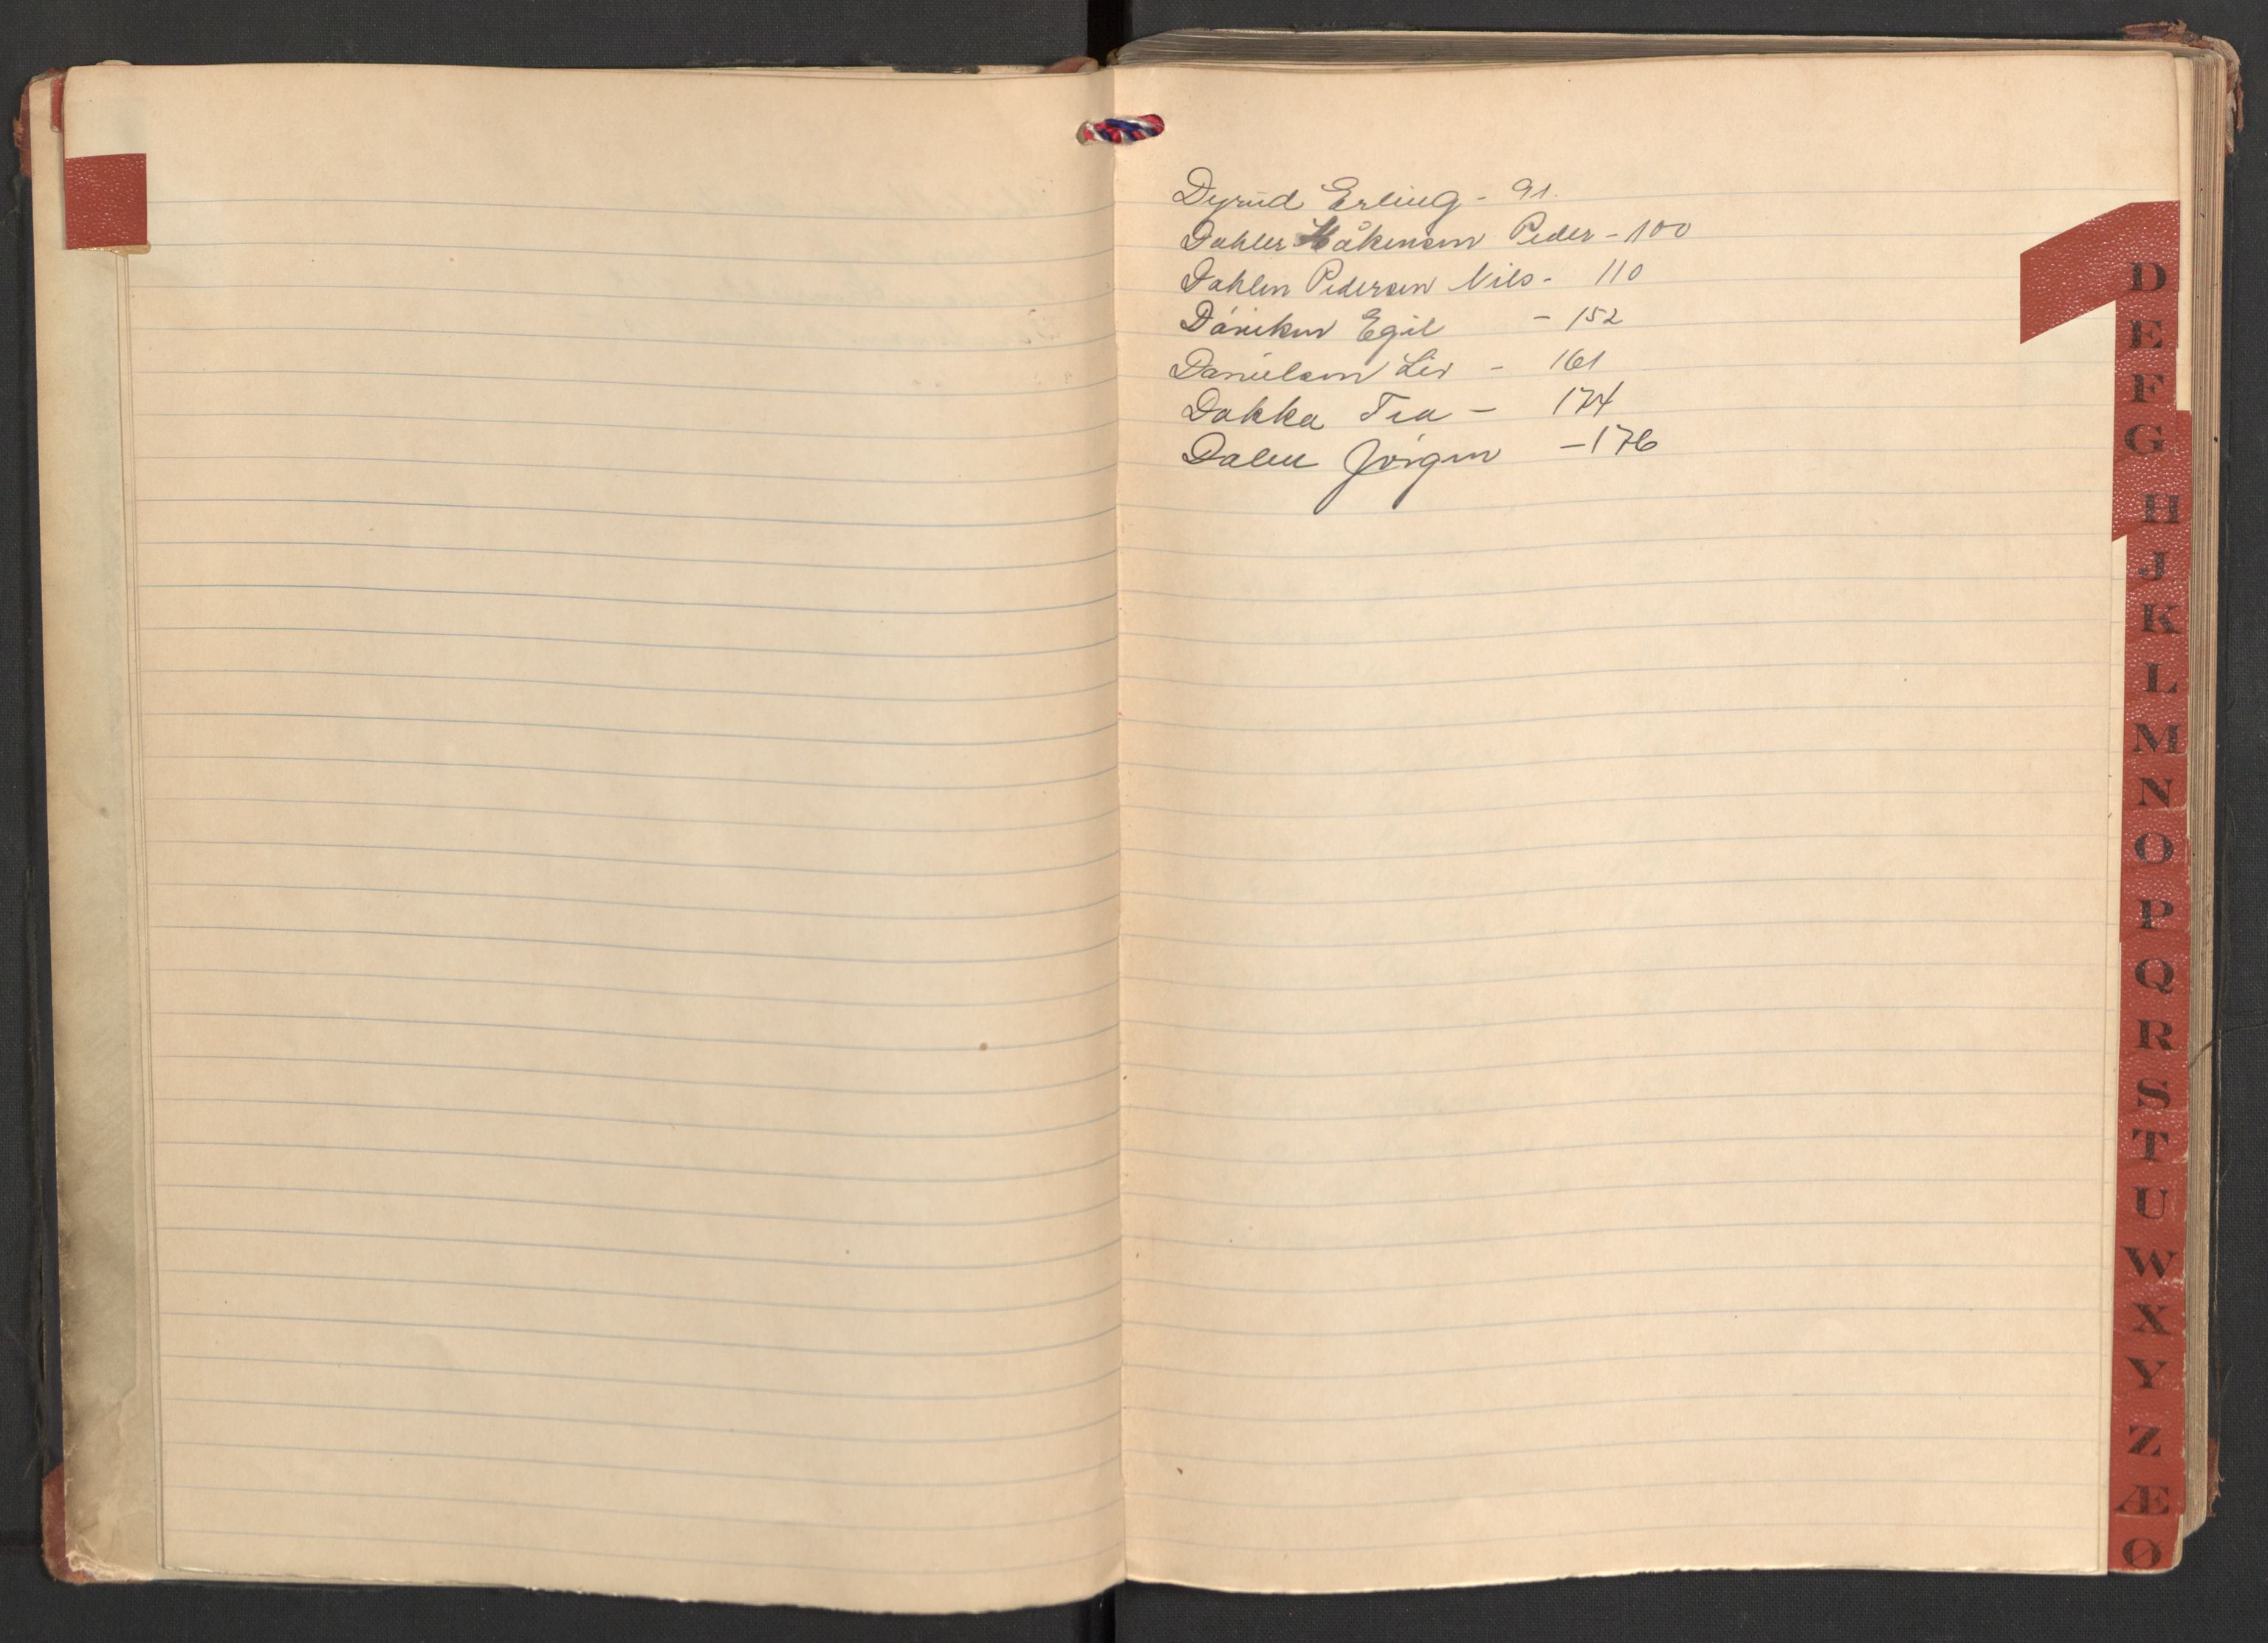 Dyrud Erling - 91.
Dahler Håkensen Peder - 100
Dahlen Pedersen Nils - 110
Egil - 152
Danielsen Liv - 161
Dokka Tea - 174
Dalen Jörgen - 176
D
E
F
G
H
J
K
L
M
N
O
P
Q
R
S
T
U
W
X
Y
Z
Æ
Ø